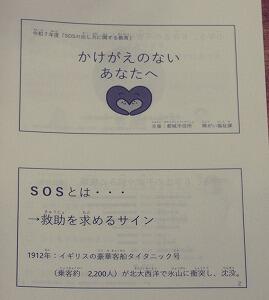 令和7年度「SOSの出し方に関する教育」
かけがえのない
あなたへ
主催:都城市役所 障がい福祉課
SOSとは・・・
→救助を求めるサイン
1912年:イギリスの豪華客船タイタニック号
(乗客約 2,200人)が北大西洋で氷山に衝突し、沈没。
2